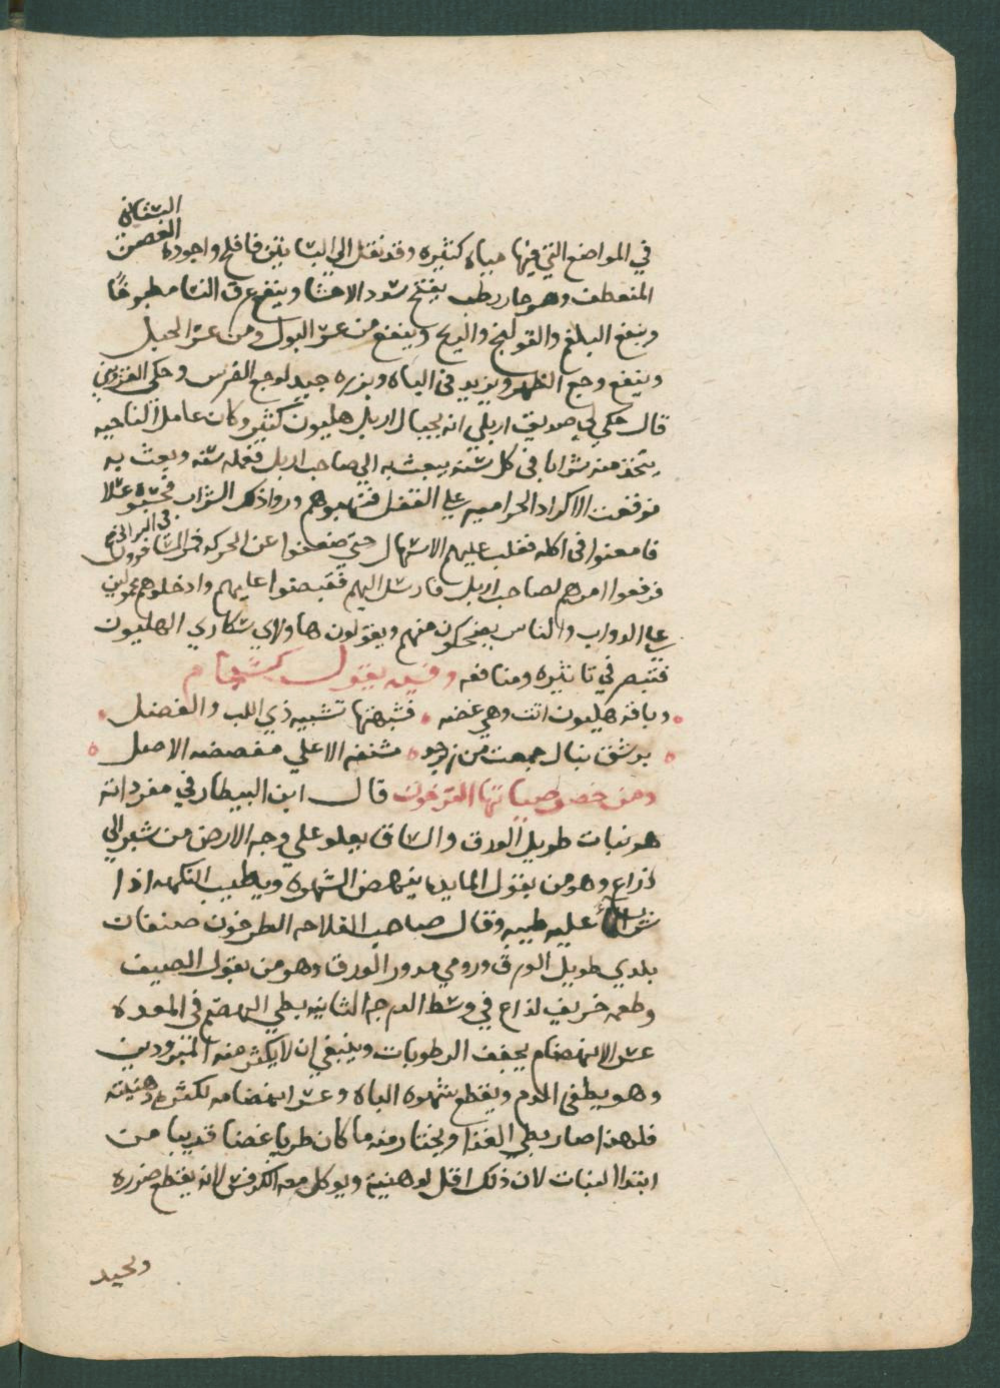 البستانى
في المواضع التي فيها مياه كثيره وقد نقل الى البساتين فافلح واجوده الغصن
المنعطف وهو حار رطب يفتح سدد الاحشا وينفع عرق النسا مطبوخا
وينفع البلغم والقولنج والريح وينفع من عسر البول ومن عسر الحبل
وينفع وجع الظهر ويزيد في الباه وبزره جيد لوجع الضرس وحكى القزويني
قال حكى لي صديق اربلي انه بجبال اربل هليون كثير وكان عامل الناحيه
يتخذ منه شرابا في كل سنه يبعث به الي صاحب اربل فعمله سنه وبعث به
فوقعت الاكراد الحراميه علي القفل فنهبوهم وراوا ذلك الشراب فحسبوه عسلا
فامعنوا في اكله فغلب عليهم الاسهال حتى ضعفوا عن الحركه فمر المسافرون في البر الى
فرفعوا امرهم لصاحب اربل فارسل اليهم فقبضوا عليهم وادخلوهم محمولين
علي الدواب والناس يضحكون منهم ويقولون هاولاي سكاري الهليون
فتبصر في تاثيره ومنافعه وفيه يقول كشاجم
وباقه هليون اتت وهي غضه فشبهتها تشبيه ذي اللب والفضل
برشق نبال جمعت من زبرجد مشنفه الاعلي مفضضه الاصل
ومن خصوصياتها الطرخون قال ابن البيطار في مفرداته
هو نبات طويل الورق والساق يعلو علي وجه الارض من شبر الي
ذراع وهو من بقول المايده ينهض الشهوه ويطيب النكهه اذا
شرب الماء عليه طيبه وقال صاحب الفلاحه الطرخون صنفان
بلدي طويل الورق ورومي مدور الورق وهو من بقول الصيف
وطعمه حريف لذاع في وسط الدرجه الثانيه بطي الهضم في المعده
عسر الانهضام يجفف الرطوبات وينبغي ان لا يكثر منه المبرودين
وهو يطفى الدم ويقطع شهوة الباه وعسر انهضامه لكثرة دهنيته
فلهذا صار بطي الغذا ويختار منه ما كان طريا غضا قريبا من
ابتدا النبات لان ذلك اقل لدهنيته ويوكل معه الكرفس لانه يقطع ضرره
ويجيد